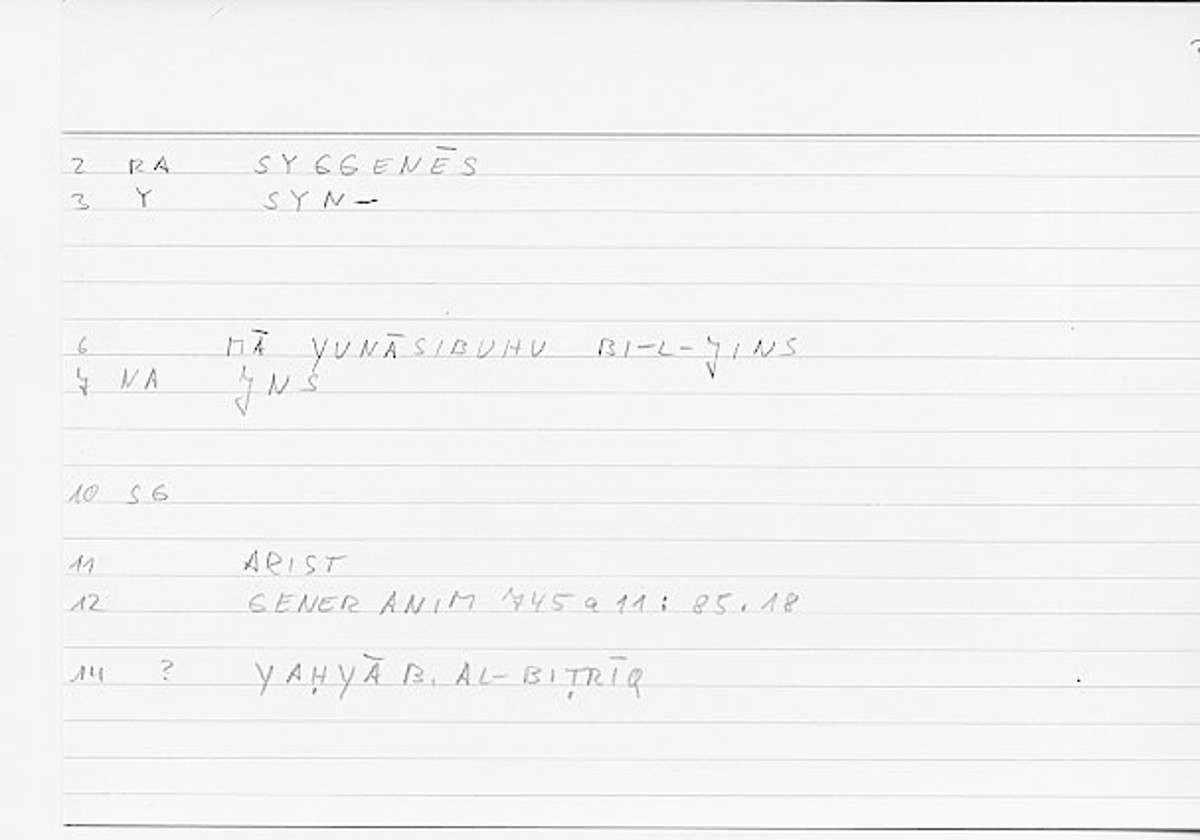 2 RA SYGGENĒS
3 Y SYN-
6 MĀ YUNĀSIBUHU BI-L-JINS
7 NA JNS
10 SG
11 ARIST
12 GENER ANIM 745a11: 85.18
14 ? YAḤYĀ B. AL-BIṬRĪQ